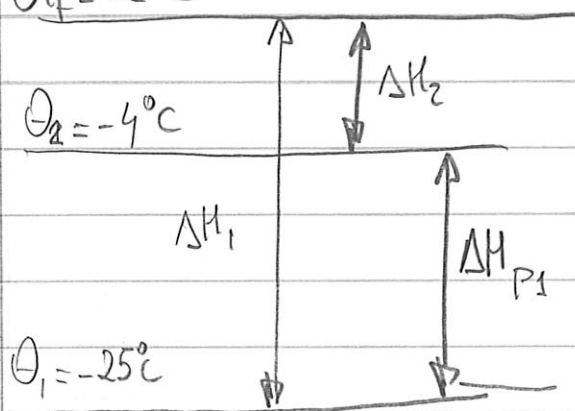 ΔH₂
θ₂ = -4°C
ΔH₁
ΔH_P1
θ₁ = -25°C